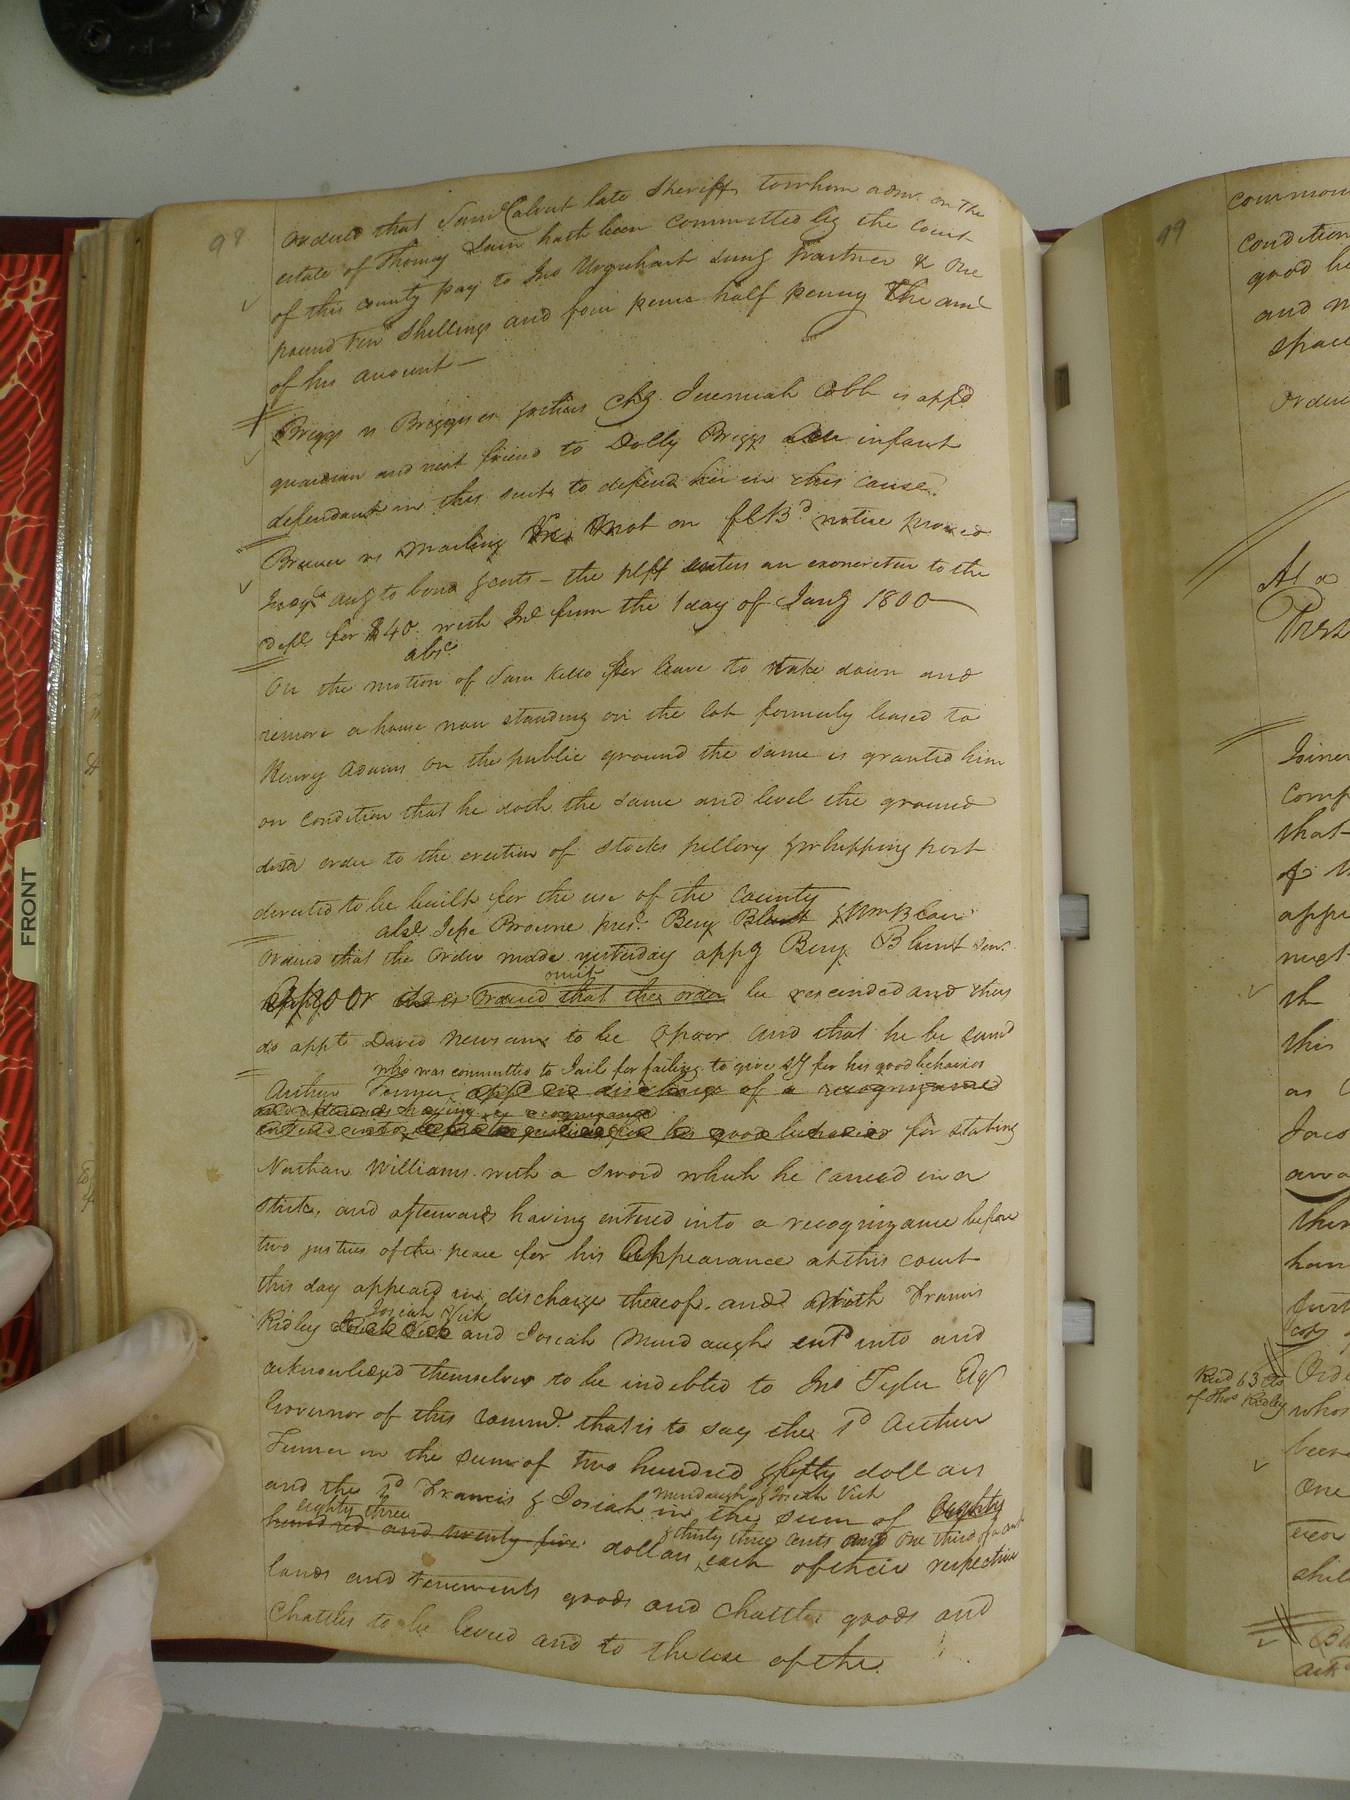 98
Ordered that Saml Calvert late Sheriff to whom admr. on the
estate of Thomas Lain hath been committed by the Court
of this county pay to Jno Urquhart survg partner & one
pound ten shillings and four pence half penny the amt
of his account —
Briggs vs Briggs on justices Chy. Jeremiah Cobb is appd
guardian and next friend to Dolly Briggs an infant
defendant in this suit to defend her in this cause.
Browne vs on f l Bd notice proved
Judgt to bond & costs — the plff enters an exoneretur to the
deft. for $40. with Int from the 1 day of Jany 1800
absc.
On the motion of Sam Kello for leave to take down and
remove a house now standing on the lot formerly leased to
Henry Adams on the public ground the same is granted him
on condition that he doth the same and level the ground
and order to the erection of stocks pillory & whipping post
directed to be built for the use of the County
abst. Jesse Browne prest. Benj Blunt & Wm Blow
Ordered that the order made yesterday appg Benj. Blunt Senr.
omit
appgo Or ordered that the order be rescinded and they
do appt David Newsum to be Opoor and that he be sumd
who was committed to Jail for failing to give sy for his good behavior
Arthur Turner appd in discharge of a recognizance
and afterwards having a recognizance
entered into for his good behavior for stabing
Nathan Williams with a sword which he carried in a
stick, and afterwards having entered into a recognizance before
two justices of the peace for his appearance at this court
this day appeard in discharge thereof. and with Francis
Josiah Vick
Ridley and Josiah Mundaugh entd into and
acknowledged themselves to be indebted to Jno Tyler Esqr
Governor of this commd. that is to say the sd Arthur
Turner in the sum of two hundred & fifty dollars
and the sd Francis & Josiah Mundaugh & Josiah Vick in the sum of Eighty
eighty three & thirty three cents and one third of a cent
hundred and twenty five dollars each of their respective
lands and tenements goods and chattles goods and
Chattles to be levied and to the use of the
99
common
condition
good be
and
Orde
Al
Test
Joiner
comp
that
of
appe
next
the
this
as
away
then
further
copy
Recd 63 cts
of Thos Ridley
Orde
whos
been
One